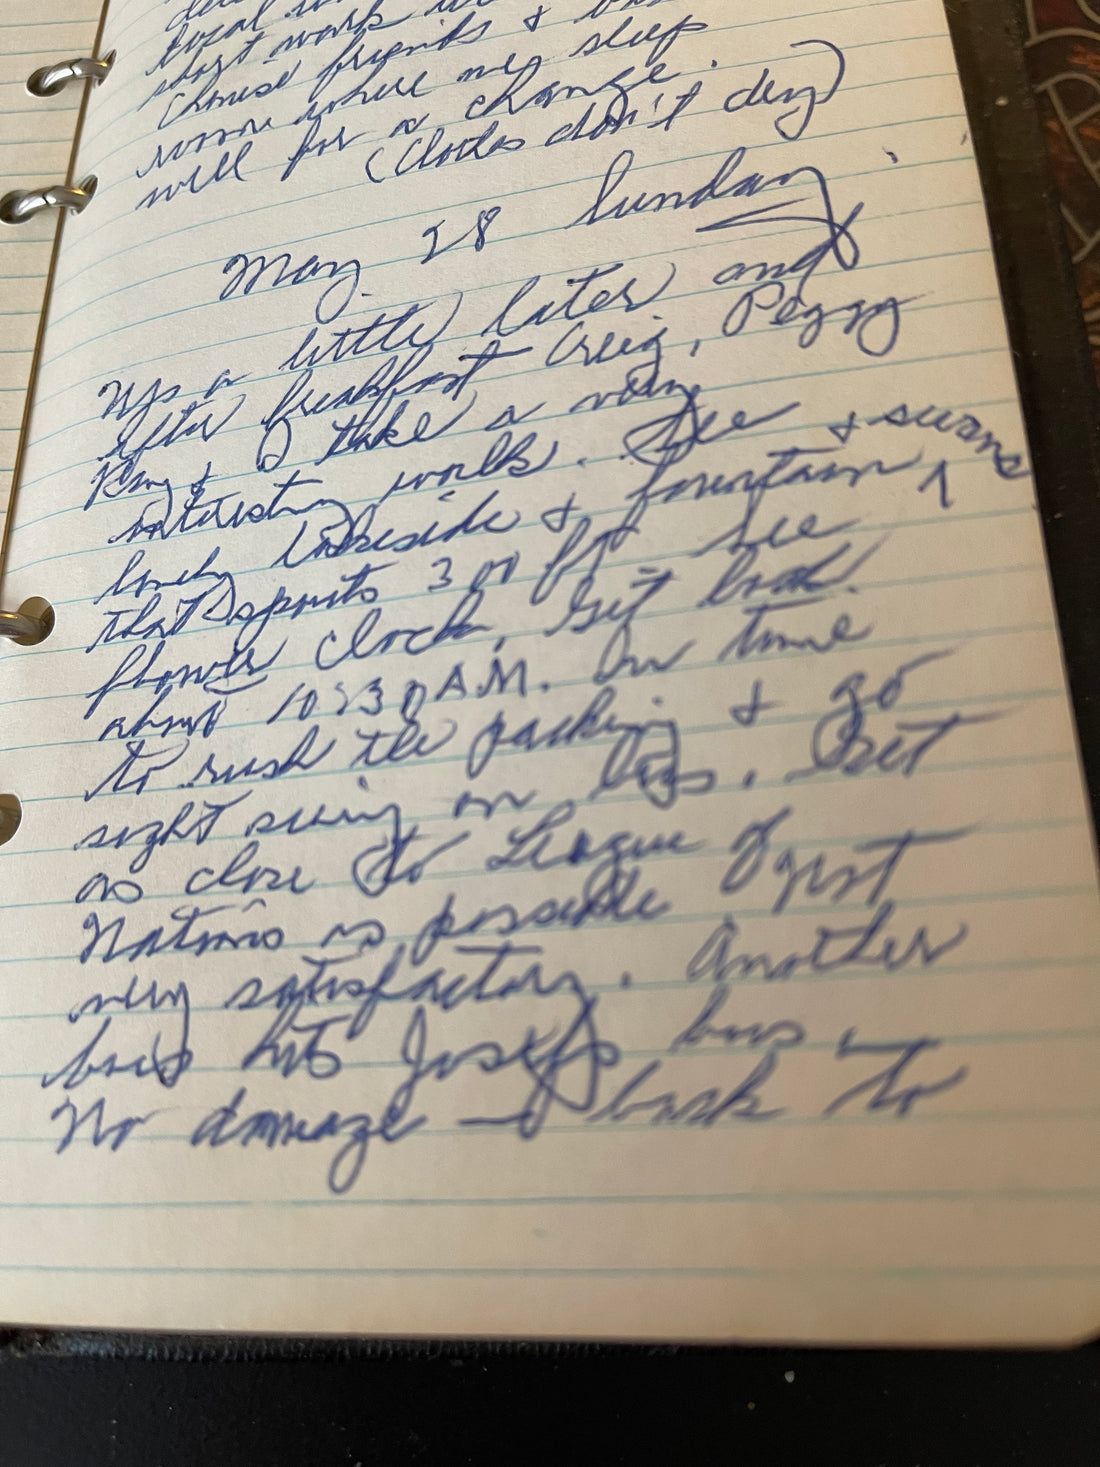 local
start work
Chinese friends &
room where we sleep
well for a change.
(Clothes don't dry)
May 28 Sunday
Up a little later and
after breakfast Creig, Peggy
Ray & I take a very
interesting walk. See
lovely lakeside & fountain & swans
that spouts 300 ft See
flower clock, Get back
about 10:30 AM. In time
to rush the packing & go
sight seeing on bus. Get
as close to League of
Nations as possible just
very satisfactory. Another
bus hits Josef's bus —
No damage — back to